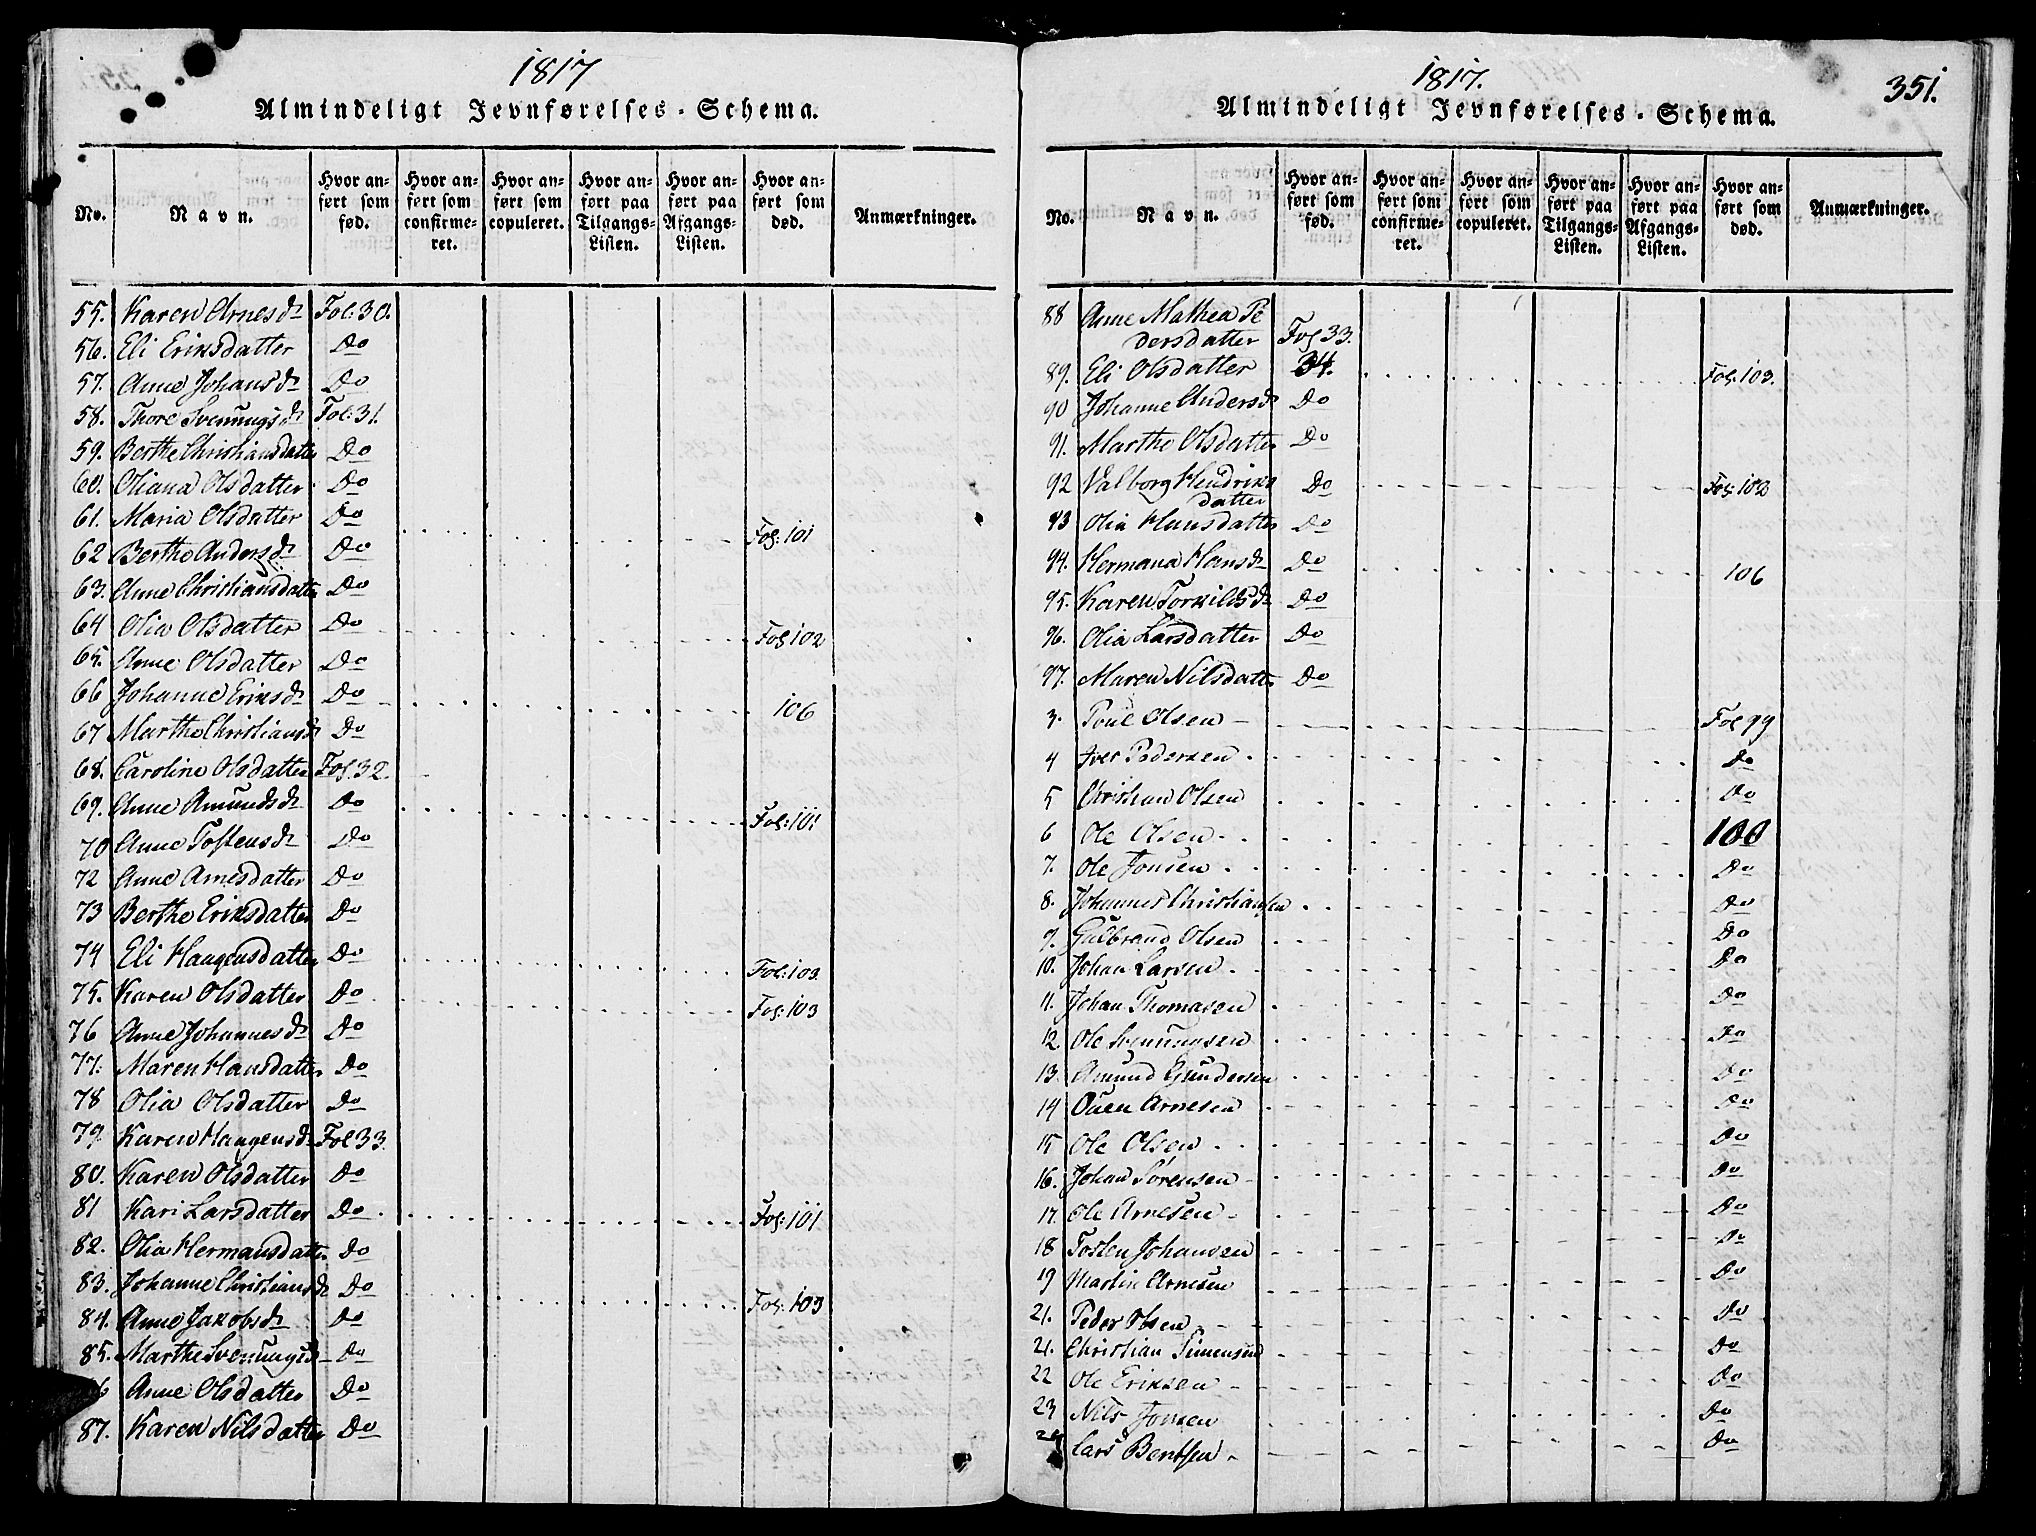 1817
Almindeligt Jevnførelses-Schema.
No.
Navn.
Hvor an-
ført som
fød.
Hvor an-
ført som
confirme-
ret.
Hvor an-
ført som
copuleret.
Hvor an-
ført paa
Tilgangs-
Listen.
Hvor an-
ført paa
Afgangs-
Listen.
Hvor an-
ført som
død.
Anmærkninger.
55. Karen Arnesdr Fol: 30.
56. Eli Eriksdatter Do
57. Anne Johansdr Do
58. Thore Svenungsdr Fol: 31.
59. Berthe Christiansdatter Do
60. Oliana Olsdatter Do
61. Maria Olsdatter Do Fol: 101
62 Berthe Andersdr Do
63. Anne Christiansdatter Do
64 Olia Olsdatter Do Fol 102
65. Anne Olsdatter Do
66 Johanne Eriksdr Do 106
67 Marthe Christiansdr Do
68. Caroline Olsdatter Fol. 32.
69. Anne Amundsdr Do Fol: 101
70 Anne Tostensdr Do
72 Anne Arnesdatter Do
73 Berthe Eriksdatter Do
74 Eli Haagensdatter Do Fol: 103
75. Karen Olsdatter Do Fol: 103
76 Anne Johannesdr Do
77. Maren Hansdatter Do
78 Olia Olsdatter Do
79. Karen Haagensdr Fol 33.
80. Karen Olsdatter Do
81 Kari Larsdatter Do Fol: 101
82. Olia Hermansdatter Do
83. Johanne Christiansdr Do Fol: 103
84. Anne Jakobsdr Do
85. Marthe Svenungsd Do
6 Anne Olsdatter Do
87. Karen Nilsdatter Do
1817.
351.
Almindeligt Jevnførelses-Schema.
No.
Navn.
Hvor an-
ført som
fød.
Hvor an-
ført som
confirme-
ret.
Hvor an-
ført som
copuleret.
Hvor an-
ført paa
Tilgangs-
Listen.
Hvor an-
ført paa
Afgangs-
Listen.
Hvor an-
ført som
død.
Anmærkninger.
88 Anne Mathea Pe
dersdatter Fol 33.
89. Eli Olsdatter 34. Fol. 103.
90 Johanne Andersd Do
91. Marthe Olsdatter Do
92 Valborg Hendriks
datter Do Fol: 102
93 Olia Hansdatter Do
94. Hermana Hansdr Do 106
95. Karen Torkildsdr Do
96. Olia Larsdatter Do
97. Maren Nilsdatter Do
3. Poul Olsen Fol 99
4 Iver Pedersen Do
5 Christian Olsen Do
6 Ole Olsen 100
7. Ole Jonsen Do
8. Johannes Christiansen Do
9. Gulbrand Olsen Do
10. Johan Larsen Do
11. Johan Thomasen Do
12. Ole Svenungsen Do
13. Amund Gundersen Do
14 Ouen Arnesen Do
15 Ole Olsen Do
16. Johan Sørensen Do
17. Ole Arnesen Do
18 Tosten Johansen Do
19 Martin Arnesen Do
21. Peder Olsen Do
21. Christian Simensen Do
22 Ole Eriksen Do
23 Nils Jonsen Do
24 Lars Bentsen Do